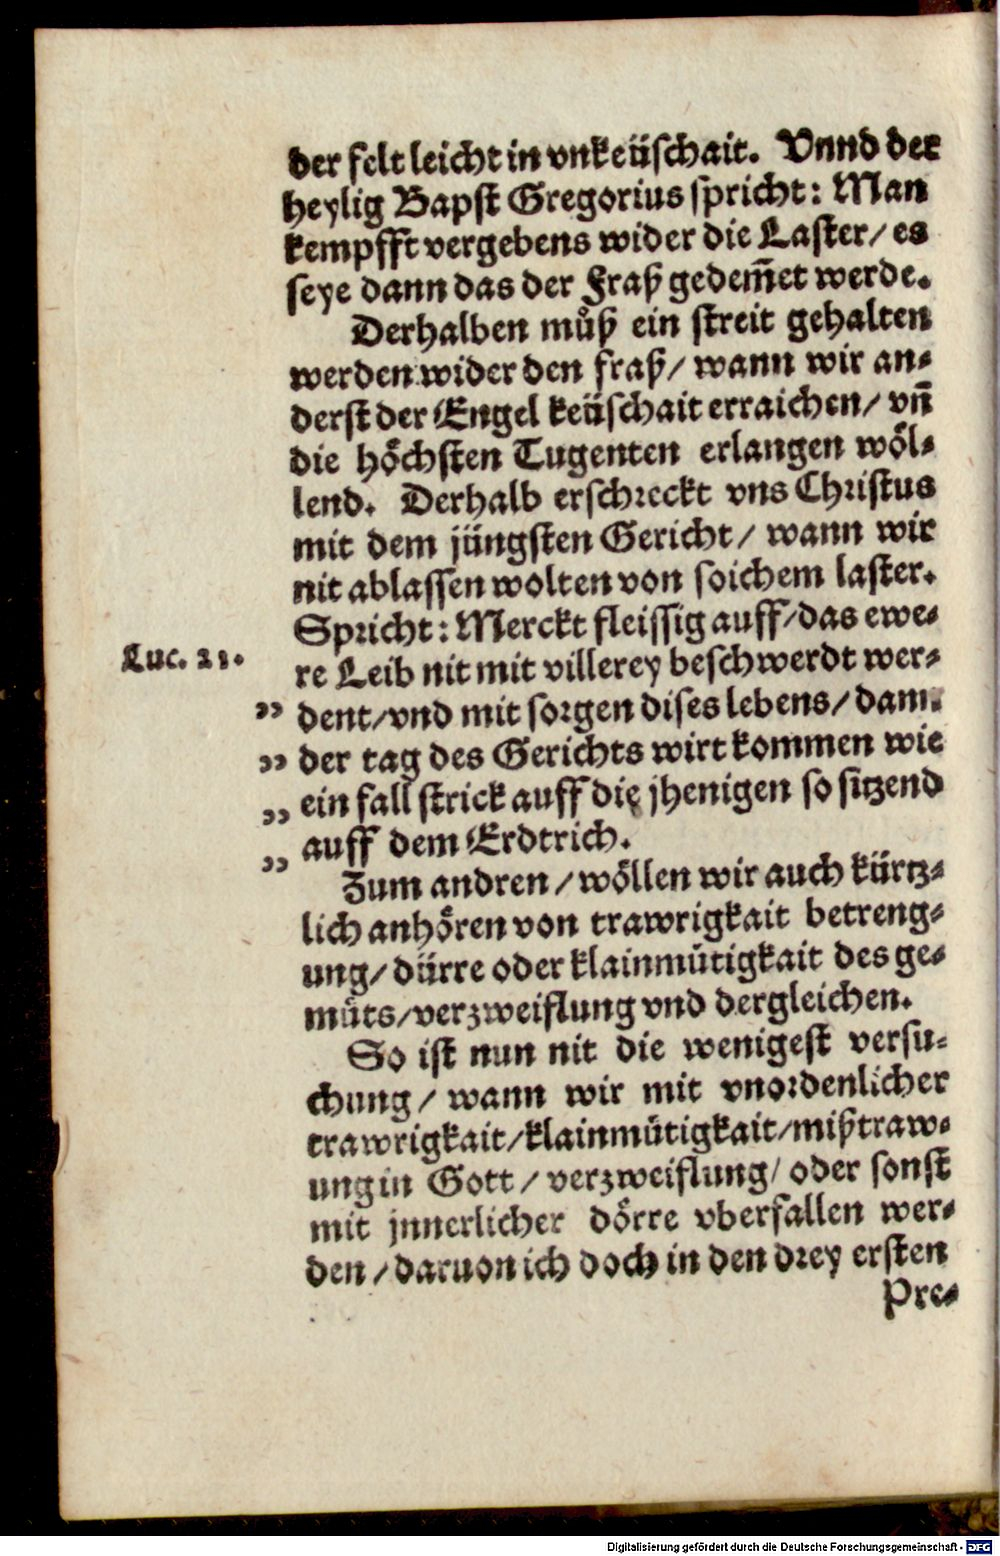 der felt leicht in vnkeüschait. Vnnd der
heylig Bapst Gregorius spricht: Man
kempfft vergebens wider die Laster/ es
seye dann das der Fraß gedem̃et werde.
Derhalben muͤß ein streit gehalten
werden wider den fraß/ wann wir an-
derst der Engel keüschait erraichen/ vñ
die hoͤchsten Tugenten erlangen woͤl-
lend. Derhalb erschreckt vns Christus
mit dem jüngsten Gericht/ wann wir
nit ablassen wolten von soichem laster.
Spricht: Merckt fleissig auff/ das ewe-
Luc. 21.
re Leib nit mit villerey beschwerdt wer-
„ dent/ vnd mit sorgen dises lebens/ dann
„ der tag des Gerichts wirt kommen wie
„ ein fall strick auff die jhenigen so sitzend
„ auff dem Erdtrich.
Zum andren/ woͤllen wir auch kürtz-
lich anhoͤren von trawrigkait betreng-
ung/ dürre oder klainmütigkait des ge-
müts/ verzweiflung vnd dergleichen.
So ist nun nit die wenigest versu-
chung/ wann wir mit vnordenlicher
trawrigkait/ klainmütigkait/ mißtraw-
ung in Gott/ verzweiflung/ oder sonst
mit jnnerlicher doͤrre vberfallen wer-
den/ daruon ich doch in den drey ersten
Pre-
Digitalisierung gefördert durch die Deutsche Forschungsgemeinschaft - DFG